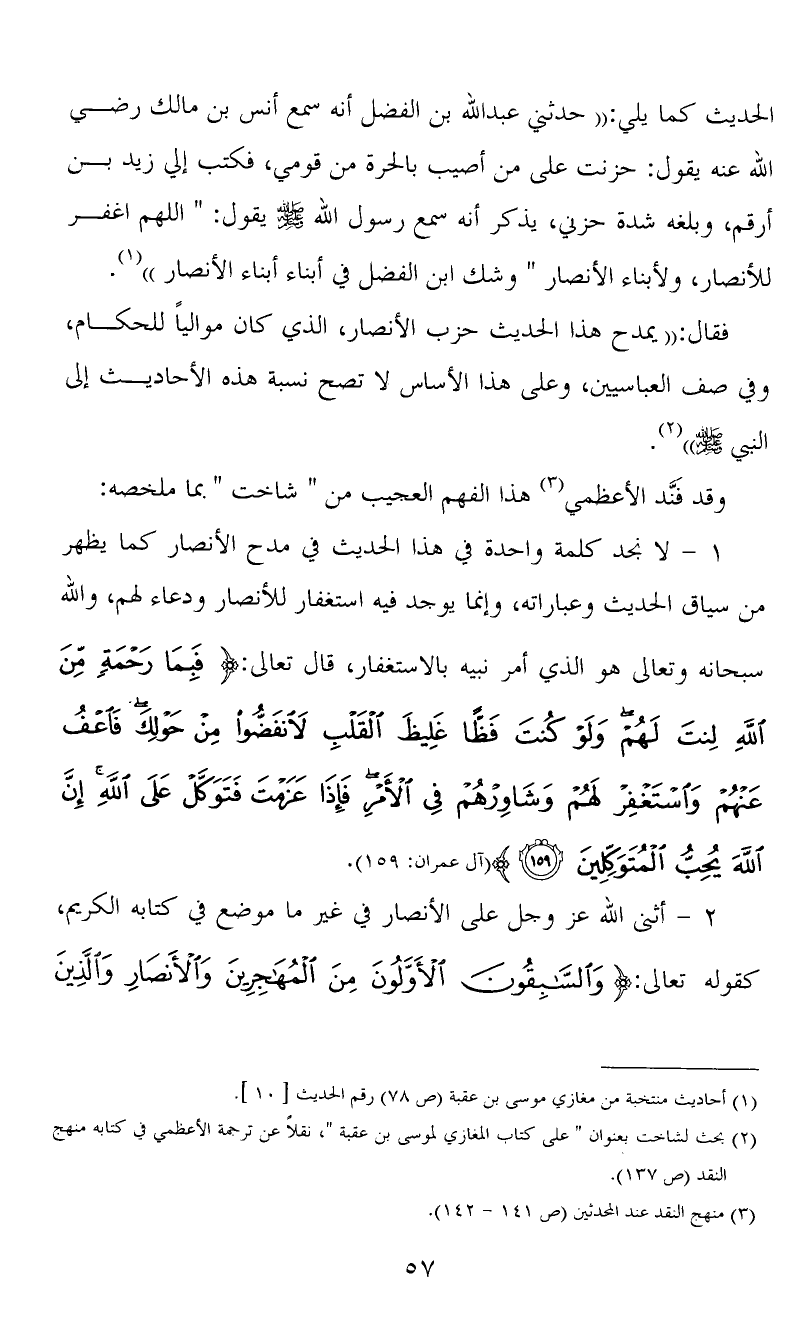 الحديث كما يلي:(( حدثني عبدالله بن الفضل أنه سمع أنس بن مالك رضي
الله عنه يقول: حزنت على من أصيب بالحرة من قومي، فكتب إلي زيد بن
أرقم، وبلغه شدة حزني، يذكر أنه سمع رسول الله ﷺ يقول: " اللهم اغفر
للأنصار، ولأبناء الأنصار " وشك ابن الفضل في أبناء أبناء الأنصار ))(١).
فقال:(( يمدح هذا الحديث حزب الأنصار، الذي كان موالياً للحكام،
وفي صف العباسيين، وعلى هذا الأساس لا تصح نسبة هذه الأحاديث إلى
النبي ﷺ))(٢).
وقد فَنَّد الأعظمي(٣) هذا الفهم العجيب من " شاخت " بما ملخصه:
١ - لا نجد كلمة واحدة في هذا الحديث في مدح الأنصار كما يظهر
من سياق الحديث وعباراته، وإنما يوجد فيه استغفار للأنصار ودعاء لهم، والله
سبحانه وتعالى هو الذي أمر نبيه بالاستغفار، قال تعالى:﴿ فَبِمَا رَحْمَةٍ مِّنَ
ٱللَّهِ لِنتَ لَهُمْ ۖ وَلَوْ كُنتَ فَظًّا غَلِيظَ ٱلْقَلْبِ لَٱنفَضُّوا۟ مِنْ حَوْلِكَ ۖ فَٱعْفُ
عَنْهُمْ وَٱسْتَغْفِرْ لَهُمْ وَشَاوِرْهُمْ فِى ٱلْأَمْرِ ۖ فَإِذَا عَزَمْتَ فَتَوَكَّلْ عَلَى ٱللَّهِ ۚ إِنَّ
ٱللَّهَ يُحِبُّ ٱلْمُتَوَكِّلِينَ ۝١٥٩ ﴾(آل عمران: ١٥٩).
٢ - أثنى الله عز وجل على الأنصار في غير ما موضع في كتابه الكريم،
كقوله تعالى:﴿ وَٱلسَّٰبِقُونَ ٱلْأَوَّلُونَ مِنَ ٱلْمُهَٰجِرِينَ وَٱلْأَنصَارِ وَٱلَّذِينَ
(١) أحاديث منتخبة من مغازي موسى بن عقبة (ص ٧٨) رقم الحديث [ ١٠ ].
(٢) بحث لشاخت بعنوان " على كتاب المغازي لموسى بن عقبة "، نقلاً عن ترجمة الأعظمي في كتابه منهج
النقد (ص ١٣٧).
(٣) منهج النقد عند المحدثين (ص ١٤١ - ١٤٢).
٥٧